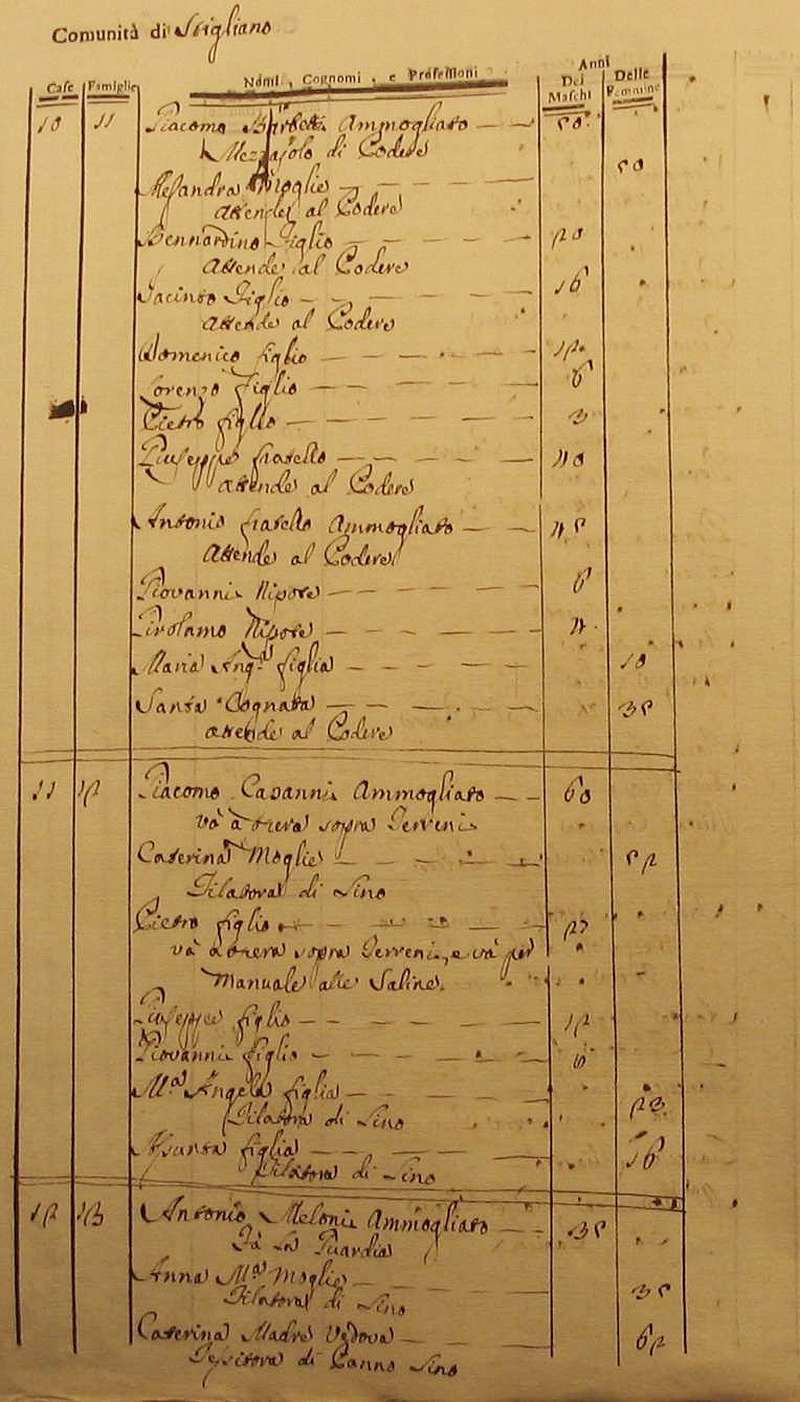 Comunità di Stigliano
Case Famiglie Nomi, Cognomi, e Professioni Anni Dei Maschi Delle Femmine
10 11 Giacomo Ammogliato 50
Mezzajolo di Podere
Alesandra Moglie 50
Attende al Podere
Bennardino Figlio 20
Attende al Podere
Jacinto Figlio 16
Attende al Podere
Domenico figlio 12
Lorenzo Figlio 6
Pietro figlio 3
Giuseppe fratello 40
Attende al Podere
Antonio fratello Ammogliato 45
Attende al Podere
Giovanni Nipote 6
Girolamo Nipote 4
Maria Ang.a figlia 10
Santa Cognata 35
Attende al Podere
11 12 Giacomo Cavanni Ammogliato 60
và à opera sopra Terreni
Caterina Moglie 52
Filatora di Lino
Pietro figlio
và à opera sopra Terreni, e và per
Manuale alle Saline
Giuseppe figlio 12
Giovanni figlio
M.a Angela figlia 23
Filatora di Lino
Assunta figlia 16
Filatora di Lino
12 13 Antonio Meloni Ammogliato 35
Fà la Guardia
Anna M.a Moglie 35
Filatora di Lino
Caterina Madre Vedova 62
Tessitora di Panno Lino